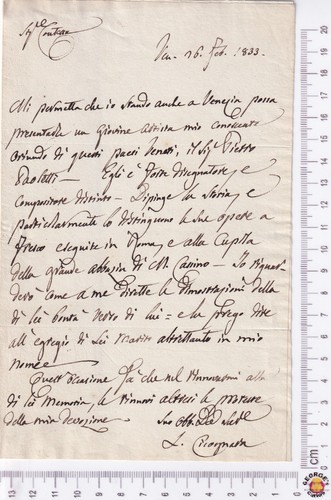 Ven. 26. Feb. 1833.
Mi permetta che io stando anche a Venezia possa
presentarle un giovine artista mio conoscente
oriundo di questi paesi Veneti, il Sig.r Pietro
Paoletti — Egli è forte disegnatore, e
compositore distinto — Dipinge la storia, e
particolarmente lo distinguono le sue opere a
fresco eseguite in Roma, e alla
della grande abbazia di M. Cassino — Io riguar-
derò come a me dirette le dimostrazioni della
di lei bontà verso di lui = e la prego dire
all'egregio di Lei marito altrettanto in mio
nome =
Quest'occasione fa che nel rinnovarmi alla
di lei memoria, le rinnovi altresì le proteste
della mia devozione
L. Cicognara